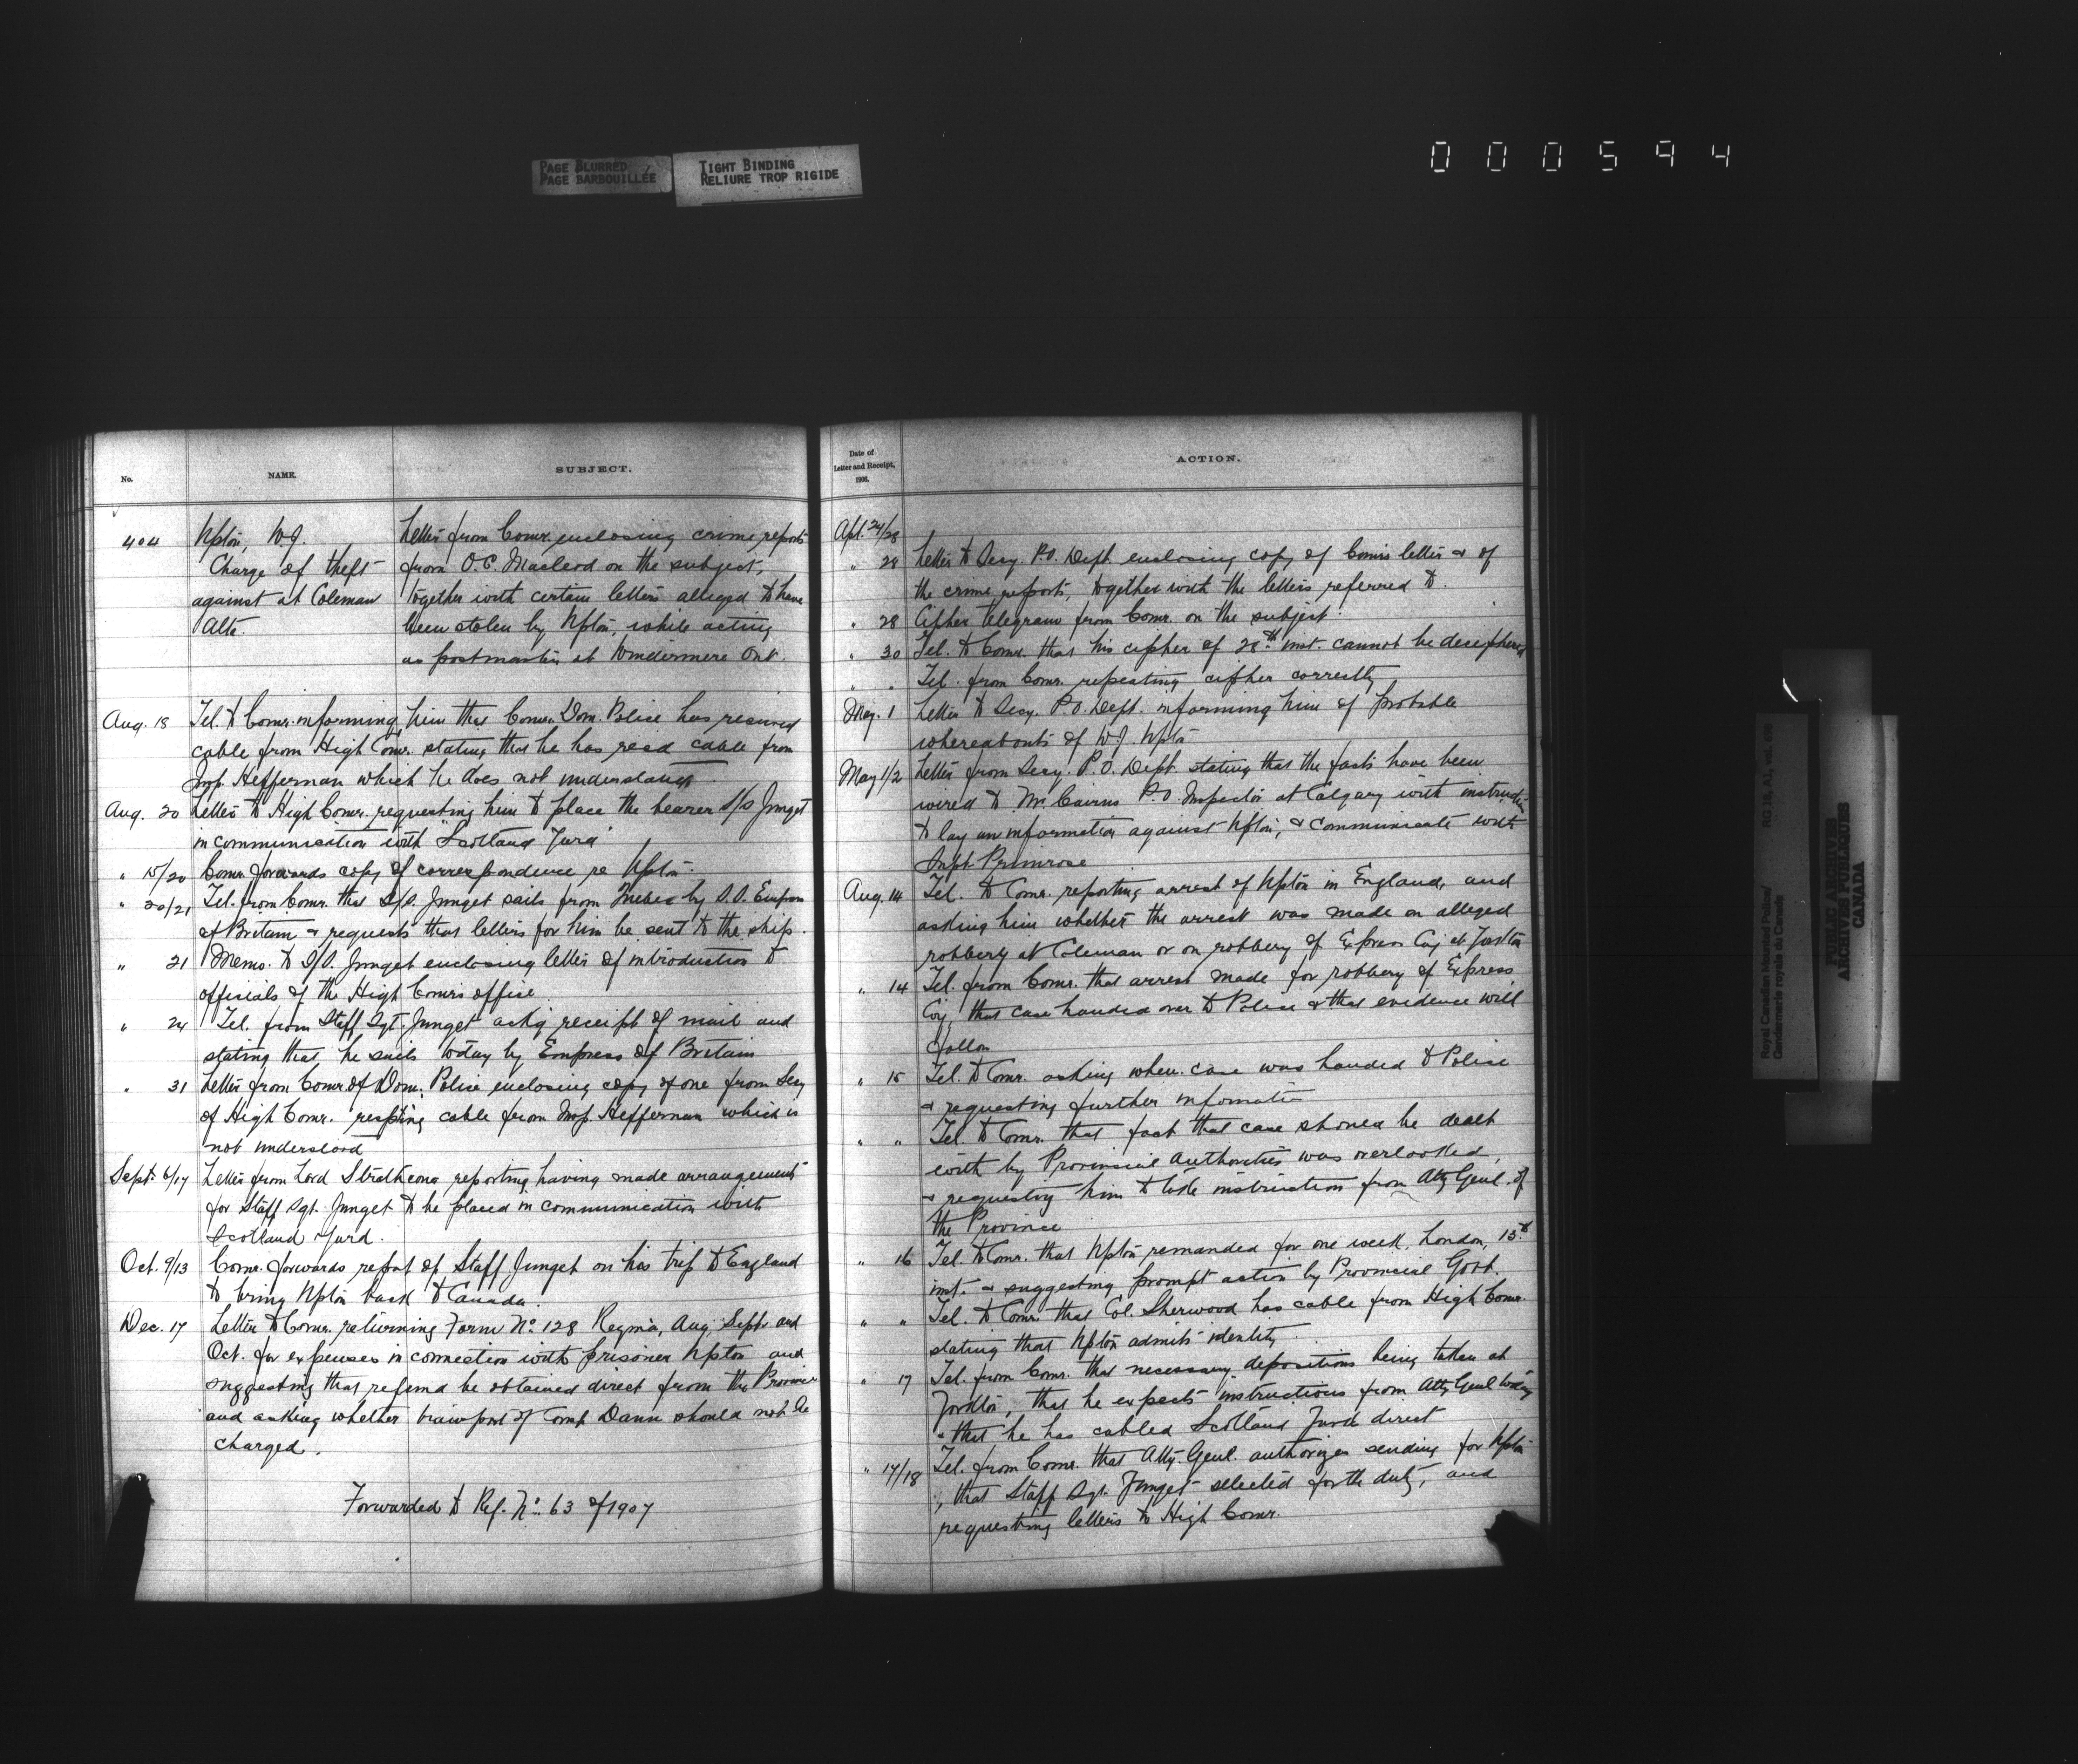 PAGE BLURRED
PAGE BARBOUILLÉE
TIGHT BINDING
RELIURE TROP RIGIDE
000594
No.
NAME.
SUBJECT.
404
Upton, W.J.
Charge of theft
against at Coleman
Alta.
Letter from Comr. enclosing crime reports
from O.C. Macleod on the subject,
together with certain letters alleged to have
been stolen by Upton, while acting
as postmaster at Windermere Ont.
Aug. 18 Tel. to Comr. informing him that Comr. Dom. Police has received
cable from High Comr. stating that he has read cable from
Insp. Heffernan which he does not understand.
Aug. 20 Letter to High Comr. requesting him to place the bearer S/S Junget
in communication with "Scotland Yard"
" 15/20 Comr. forwards copy of correspondence re Upton.
" 20/21 Tel. from Comr. that S/S. Junget sails from Quebec by S.S. Empress
of Britain & requests that letters for him be sent to the ship.
" 21 Memo. to S/S. Junget enclosing letter of introduction to
officials of the High Comrs office
" 24 Tel. from Staff Sgt. Junget ackg receipt of mail and
stating that he sails today by Empress of Britain
" 31 Letter from Comr of Dom. Police enclosing copy of one from Secy
of High Comr. respting cable from Insp. Heffernan which is
not understood
Sept. 6/17 Letter from Lord Strathcona reporting having made arrangements
for Staff Sgt. Junget to be placed in communication with
Scotland Yard.
Oct. 9/13 Comr. forwards report of Staff Junget on his trip to England
to bring Upton back to Canada.
Dec. 17 Letter to Comr. returning Form No. 128 Regina, Aug, Sept. and
Oct. for expenses in connection with prisoner Upton and
suggesting that refund be obtained direct from the Province
and asking whether transport of Const Dann should not be
charged.
Forwarded to Ref. No. 63 of 1907
Date of
Letter and Receipt,
1906.
ACTION.
Apl. 24/28
" 28 Letter to Secy. P.O. Dept. enclosing copy of Comrs letter & of
the crime reports, together with the letters referred to.
" 28 Cipher telegram from Comr. on the subject.
" 30 Tel. to Comr. that his cipher of 28th inst. cannot be deciphered
" " Tel. from Comr. repeating cipher correctly
May. 1 Letter to Secy. P.O. Dept. informing him of probable
whereabouts of W.J. Upton
May 1/2 Letter from Secy. P.O. Dept. stating that the facts have been
wired to Mr. Cairns P.O. Inspector at Calgary with instruction
to lay an information against Upton, & communicate with
Supt. Primrose
Aug. 14 Tel. to Comr. reporting arrest of Upton in England, and
asking him whether the arrest was made on alleged
robbery at Coleman or on robbery of Express Coy at
" 14 Tel. from Comr. that arrest made for robbery of Express
Coy, that case handed over to Police & that evidence will
follow
" 15 Tel. to Comr. asking when case was handed to Police
& requesting further information
" " Tel. to Comr. that fact that case should be dealt
with by Provincial Authorities was overlooked,
& requesting him to take instruction from Atty Genl. of
the Province
" 16 Tel. to Comr. that Upton remanded for one week, London, 15th
inst. & suggesting prompt action by Provincial Govt.
" " Tel. to Comr. that Col. Sherwood has cable from High Comr.
stating that Upton admits identity.
" 17 Tel. from Comr. that necessary depositions being taken at
that he expects instructions from Atty Genl today
& that he has cabled Scotland Yard direct
" 17/18 Tel. from Comr. that Atty. Genl. authorizes sending for Upton
, that Staff Sgt. Junget selected for the duty, and
requesting letters to High Comr.
Royal Canadian Mounted Police/
Gendarmerie royale du Canada
RG 18, A1, vol.
PUBLIC ARCHIVES
ARCHIVES PUBLIQUES
CANADA